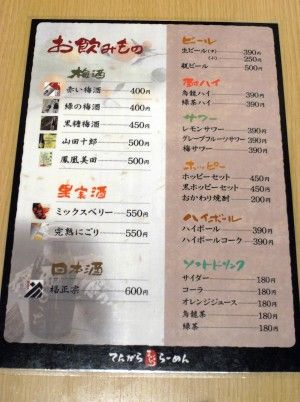 お飲みもの
梅酒
赤い梅酒 400円
緑の梅酒 400円
黒糖梅酒 450円
山田十郎 500円
鳳凰美田 500円
果実酒
ミックスベリー 550円
完熟にごり 550円
日本酒
福正宗 600円
ビール
生ビール(中) 390円
(小) 250円
瓶ビール 500円
酎ハイ
烏龍ハイ 390円
緑茶ハイ 390円
サワー
レモンサワー 390円
グレープフルーツサワー 390円
梅サワー 390円
ホッピー
ホッピーセット 450円
黒ホッピーセット 450円
おかわり焼酎 200円
ハイボール
ハイボール 390円
ハイボールコーク 390円
ソフトドリンク
サイダー 180円
コーラ 180円
オレンジジュース 180円
烏龍茶 180円
緑茶 180円
てんがら らーめん